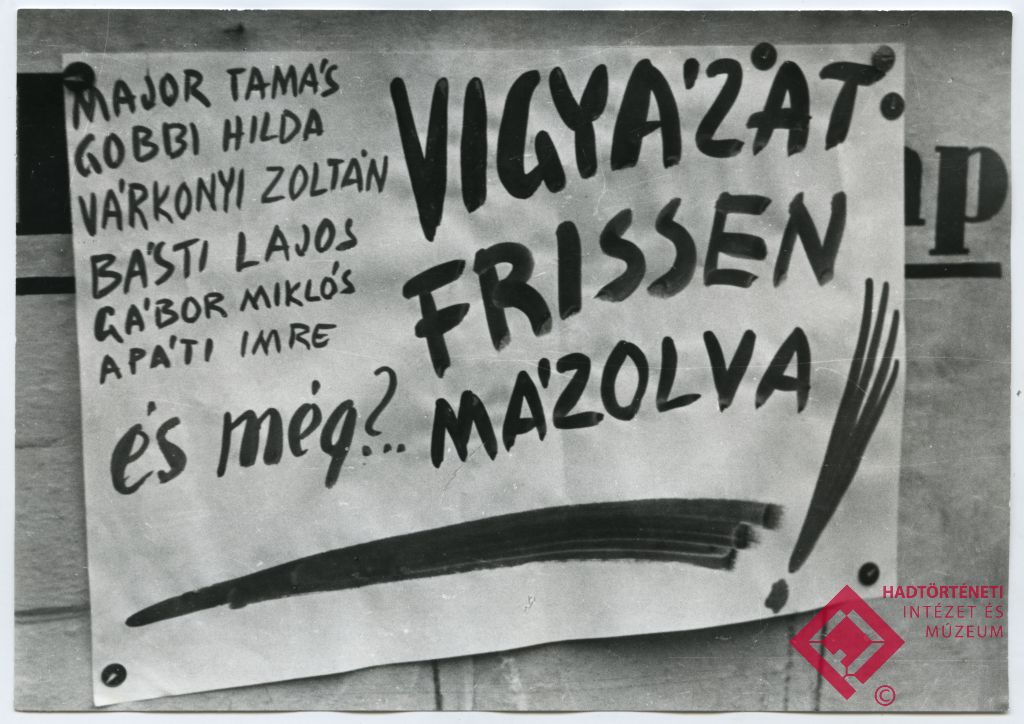 MAJOR TAMÁS
GOBBI HILDA
VÁRKONYI ZOLTÁN
BÁSTI LAJOS
GÁBOR MIKLÓS
APÁTI IMRE
és még?...
VIGYÁZAT
FRISSEN
MÁZOLVA!
ap
HADTÖRTÉNETI
INTÉZET ÉS
MÚZEUM
©